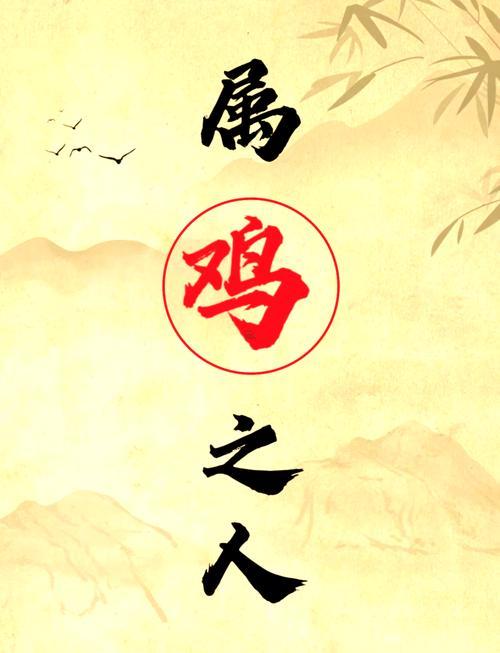 属鸡之人